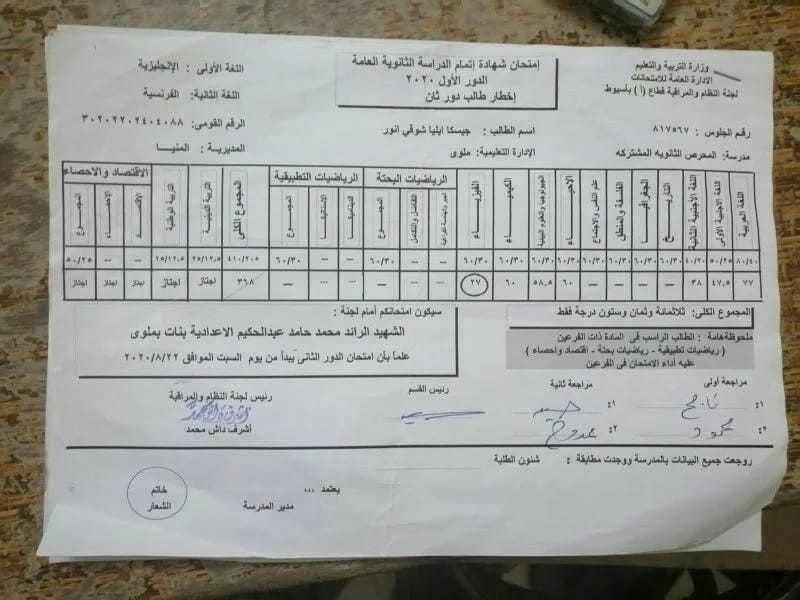 وزارة التربية والتعليم
الادارة العامة للامتحانات
لجنة النظام والمراقبة قطاع (أ) بأسيوط
إمتحان شهادة إتمام الدراسة الثانوية العامة
الدور الأول ٢٠٢٠
إخطار طالب دور ثان
اللغة الأولى : الإنجليزية
اللغة الثانية : الفرنسية
رقم الجلوس : ٨١٧٥٦٧
اسم الطالب : جيسكا ايليا شوقي انور
الرقم القومى : ٣٠٢٠٢٢٠٢٤٠٤٠٨٨
مدرسة: المحرص الثانويه المشتركه
الإدارة التعليمية: ملوى
المديرية : المنيا
اللغة العربية
اللغة الأجنبية الأولى
اللغة الأجنبية الثانية
التاريخ
الجغرافيا
الفلسفة والمنطق
علم النفس والاجتماع
الأحياء
الجيولوجيا والعلوم البيئية
الكيمياء
الفيزياء
الرياضيات البحتة
الجبر والهندسة الفراغية
التفاضل والتكامل
المجموع
الرياضيات التطبيقية
الديناميكا
الاستاتيكا
المجموع
المجموع الكلى
التربية الدينية
التربية الوطنية
الاقتصاد والاحصاء
الاقتصاد
الاحصاء
المجموع
٨٠/٤٠ ٥٠/٢٥ ٤٠/٢٠ ٦٠/٣٠ ٦٠/٣٠ ٦٠/٣٠ ٦٠/٣٠ ٦٠/٣٠ ٦٠/٣٠ ٦٠/٣٠ ٦٠/٣٠ --- --- ٦٠/٣٠ --- --- ٦٠/٣٠ ٤١٠/٢٠٥ ٢٥/١٢,٥ ٢٥/١٢,٥ --- --- ٥٠/٢٥
٧٧ ٤٧,٥ ٣٨ --- --- --- --- ٦٠ ٥٨,٥ ٦٠ ٢٧ --- --- --- --- --- --- ٣٦٨ اجتاز اجتاز اجتاز اجتاز اجتاز
المجموع الكلى: ثلاثمائة وثمان وستون درجة فقط
ملحوظة هامة : الطالب الراسب فى المادة ذات الفرعين
( رياضيات تطبيقية - رياضيات بحتة - اقتصاد واحصاء )
عليه أداء الامتحان فى الفرعين
سيكون امتحانكم أمام لجنة :
الشهيد الرائد محمد حامد عبدالحكيم الاعدادية بنات بملوى
علماً بأن امتحان الدور الثانى يبدأ من يوم السبت الموافق ٢٠٢٠/٨/٢٢
مراجعة أولى
مراجعة ثانية
رئيس القسم
رئيس لجنة النظام والمراقبة
١:
١:
٢: محمود
٢: ممدوح
أشرف داش محمد
روجعت جميع البيانات بالمدرسة ووجدت مطابقة : شئون الطلبة
يعتمد ،،،
مدير المدرسة
خاتم
الشعار